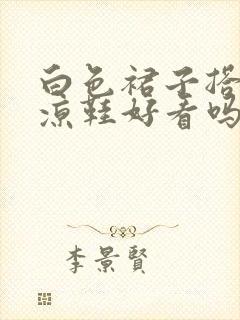 白色裙子搭
凉鞋好看吗
李景賢